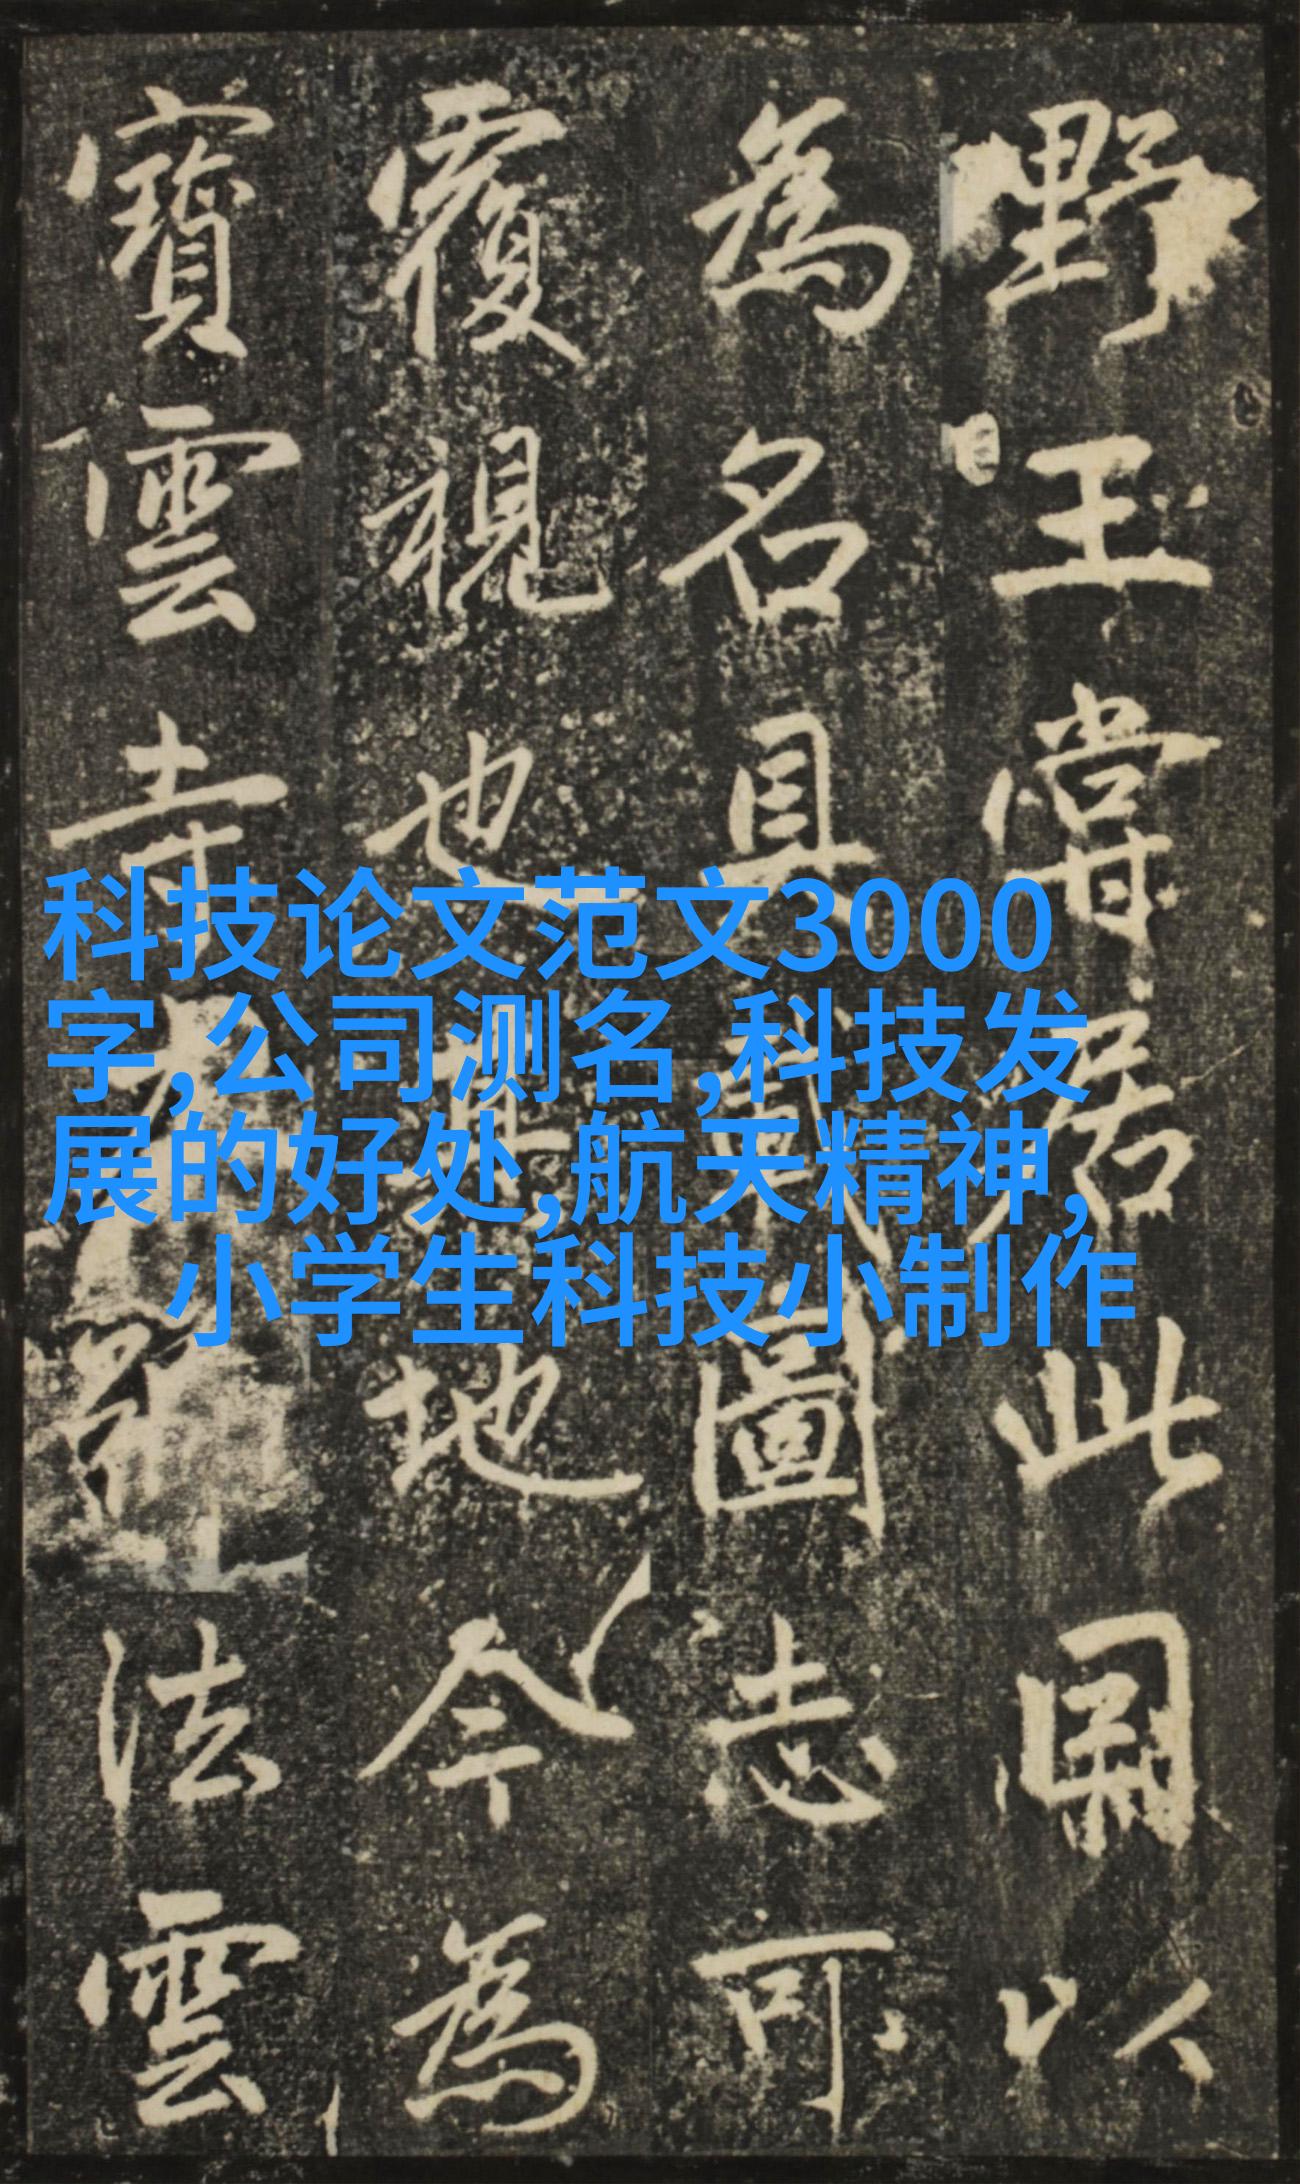 野王嘗居此以
為名具圖志可
覆視也其地今為
寶雲寺法雲
科技论文范文3000
字,公司测名,科技发
展的好处,航天精神,
小学生科技小制作